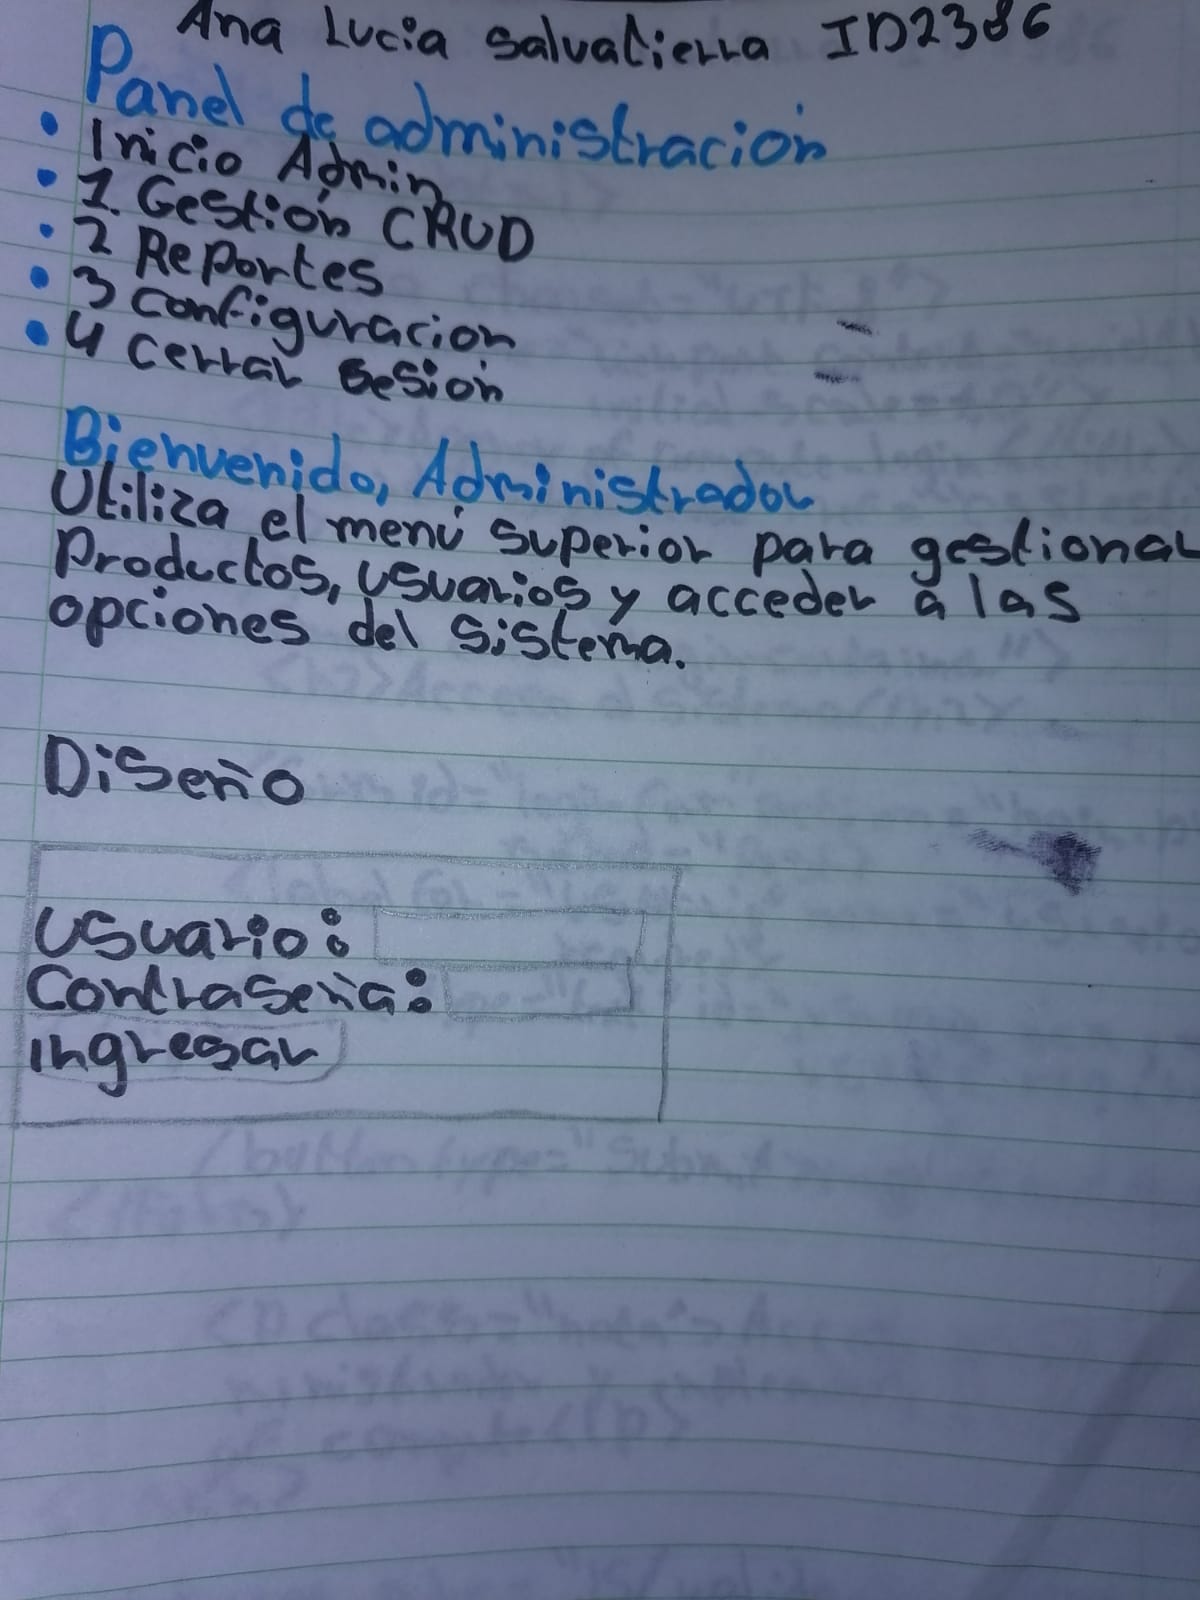 Ana Lucia Salvatierra ID2386
Panel de administración
• Inicio Admin
• 1. Gestión CRUD
• 2 Reportes
• 3 configuracion
• 4 cerrar sesión
Bienvenido, Administrador
Utiliza el menú superior para gestionar
Productos, usuarios y acceder a las
opciones del sistema.
Diseño
usuario:
Contraseña:
ingresar